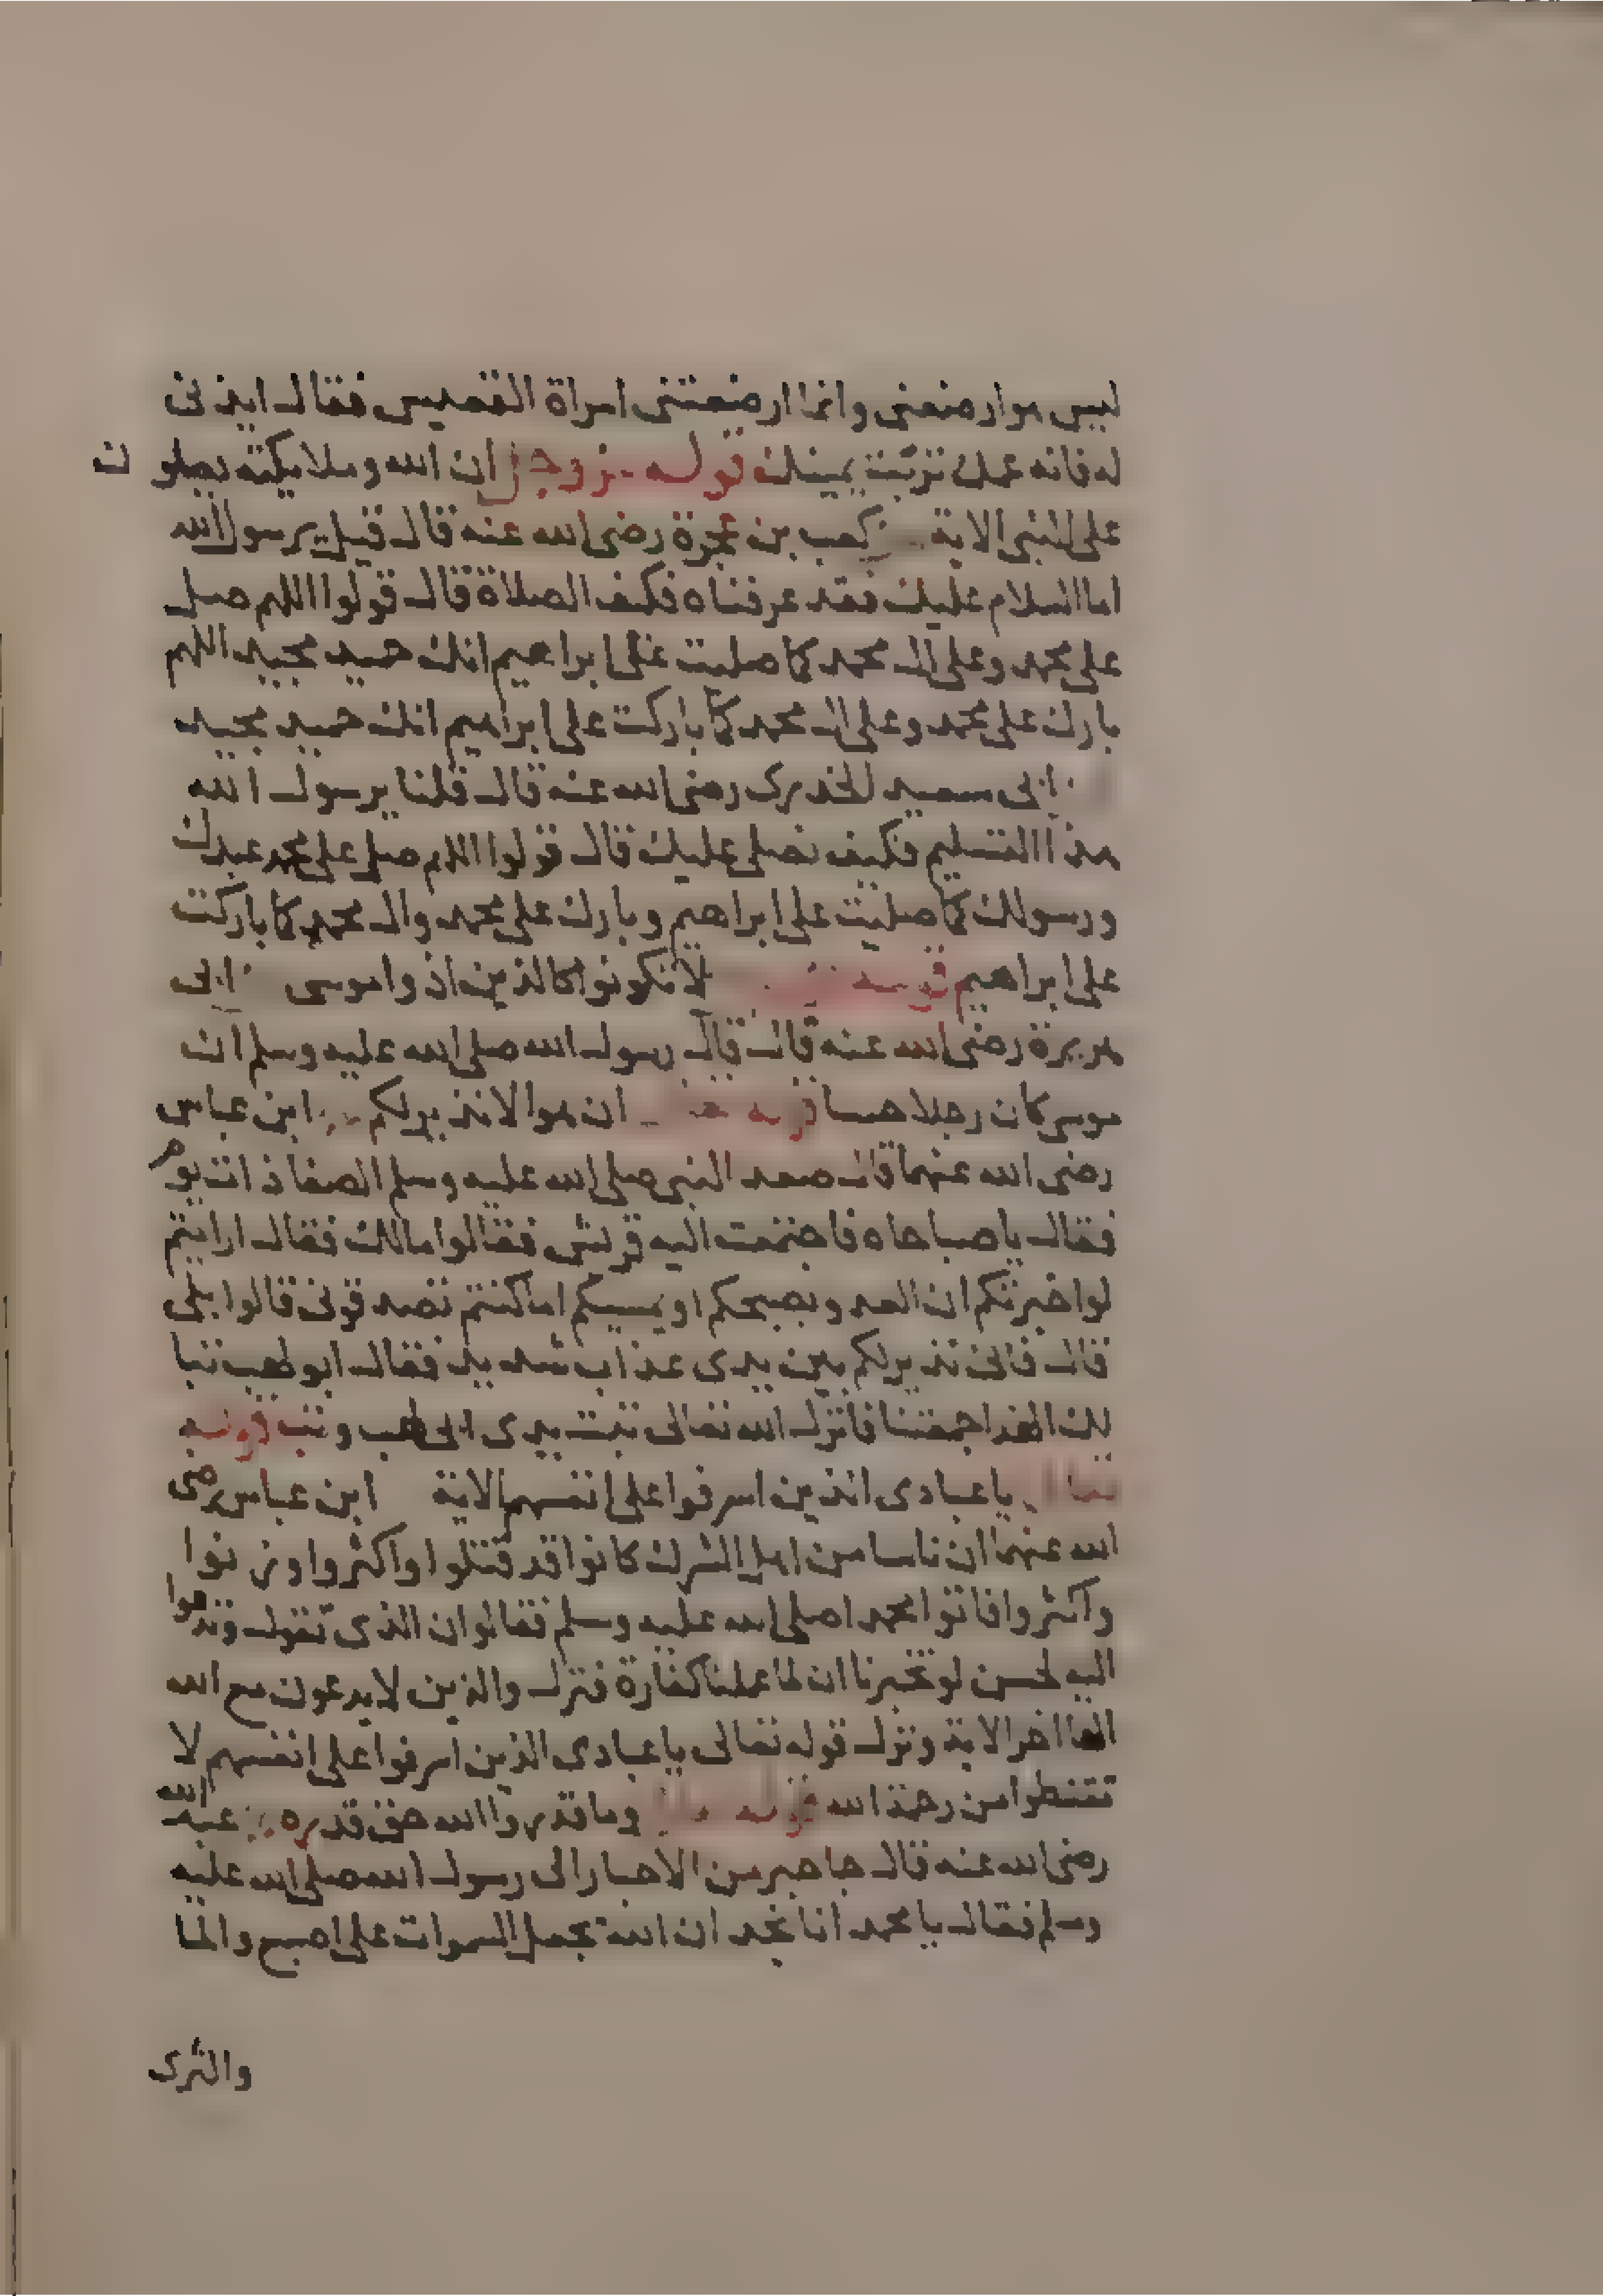 ليس هو ارضعني وانما ارضعتني امراة القعيس فقال ايذني
له فانه عمك تربت يمينك قوله عز وجل ان الله وملايكته يصلون
على النبي الاية كعب بن عجرة رضي الله عنه قال قيل يرسول الله
اما السلام عليك فقد عرفناه فكيف الصلاة قال قولوا اللهم صل
على محمد وعلى ال محمد كما صليت على ابراهيم انك حميد مجيد اللهم
بارك على محمد وعلى ال محمد كما باركت على ابراهيم انك حميد مجيد
ابي سعيد الخدري رضي الله عنه قال قلنا يرسول الله
هذا التسليم فكيف نصلي عليك قال قولوا اللهم صل على محمد عبدك
ورسولك كما صليت على ابراهيم وبارك على محمد وال محمد كما باركت
على ابراهيم قوله لا تكونوا كالذين اذوا موسى ابي
هريرة رضي الله عنه قال قال رسول الله صلى الله عليه وسلم ان
موسى كان رجلا حييا قوله ان هو الا نذير لكم ابن عباس
رضي الله عنهما قال صعد النبي صلى الله عليه وسلم الصفا ذات يوم
فقال يا صباحاه فاجتمعت اليه قريش فقالوا مالك فقال ارايتم
لو اخبرتكم ان العدو يصبحكم او يمسيكم اما كنتم تصدقوني قالوا بلى
قال فاني نذير لكم بين يدي عذاب شديد فقال ابو لهب تبا
لك الهذا جمعتنا فانزل الله تعالى تبت يدى ابي لهب وتب قوله
تعالى يا عبادى الذين اسرفوا على انفسهم الاية ابن عباس رضي
الله عنهما ان ناسا من اهل الشرك كانوا قد قتلوا واكثروا وزنوا
واكثروا فاتوا محمدا صلى الله عليه وسلم فقالوا ان الذي تقول وتدعوا
اليه لحسن لو تخبرنا ان لما عملنا كفارة فنزل والذين لا يدعون مع الله
الها اخر الاية ونزل قوله تعالى يا عبادى الذين اسرفوا على انفسهم لا
تقنطوا من رحمة الله قوله تعالى وما قدروا الله حق قدره عبد الله
رضي الله عنه قال جا حبر من الاحبار الى رسول الله صلى الله عليه
وسلم فقال يا محمد انا نجد ان الله يجعل السموات على اصبع والما
والثرى